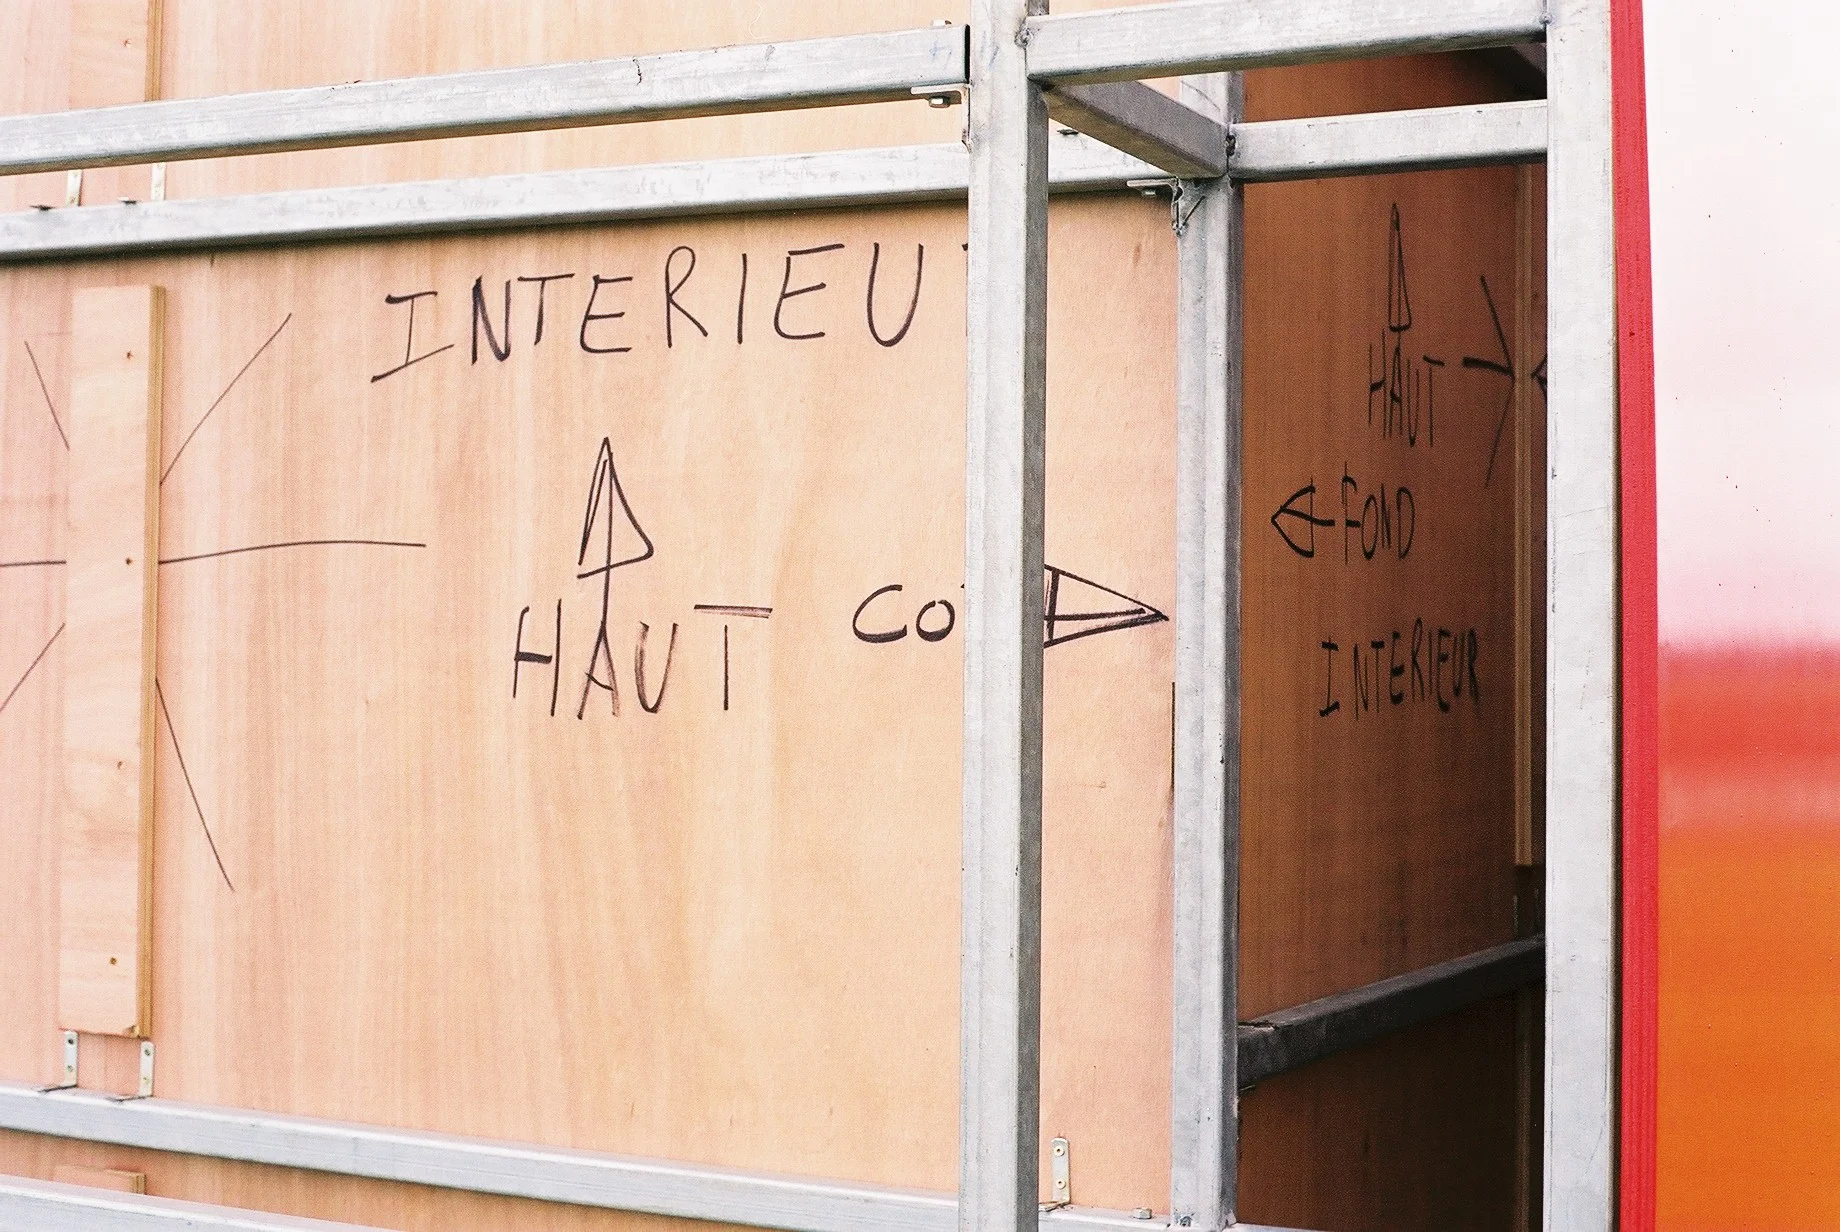 INTERIEU
HAUT
CO
HAUT
FOND
INTERIEUR